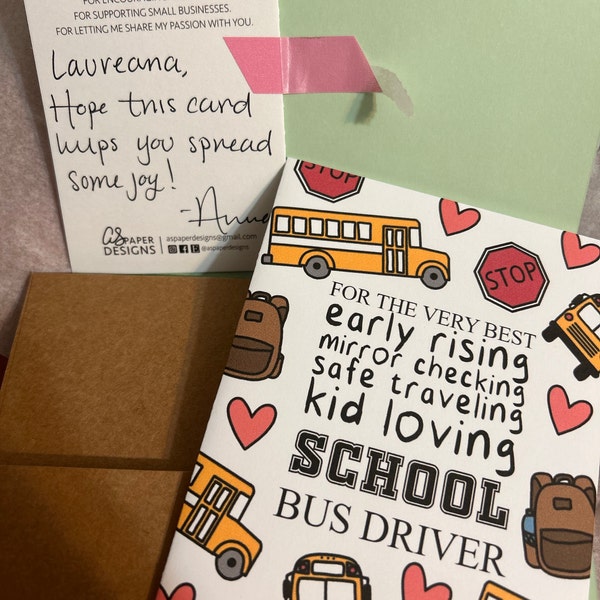 FOR SUPPORTING SMALL BUSINESSES.
FOR LETTING ME SHARE MY PASSION WITH YOU.
Laureana,
Hope this card
helps you spread
some joy!
-Anna
as PAPER
DESIGNS
aspaperdesigns@gmail.com
@aspaperdesigns
STOP
STOP
FOR THE VERY BEST
early rising
mirror checking
safe traveling
kid loving
SCHOOL
BUS DRIVER